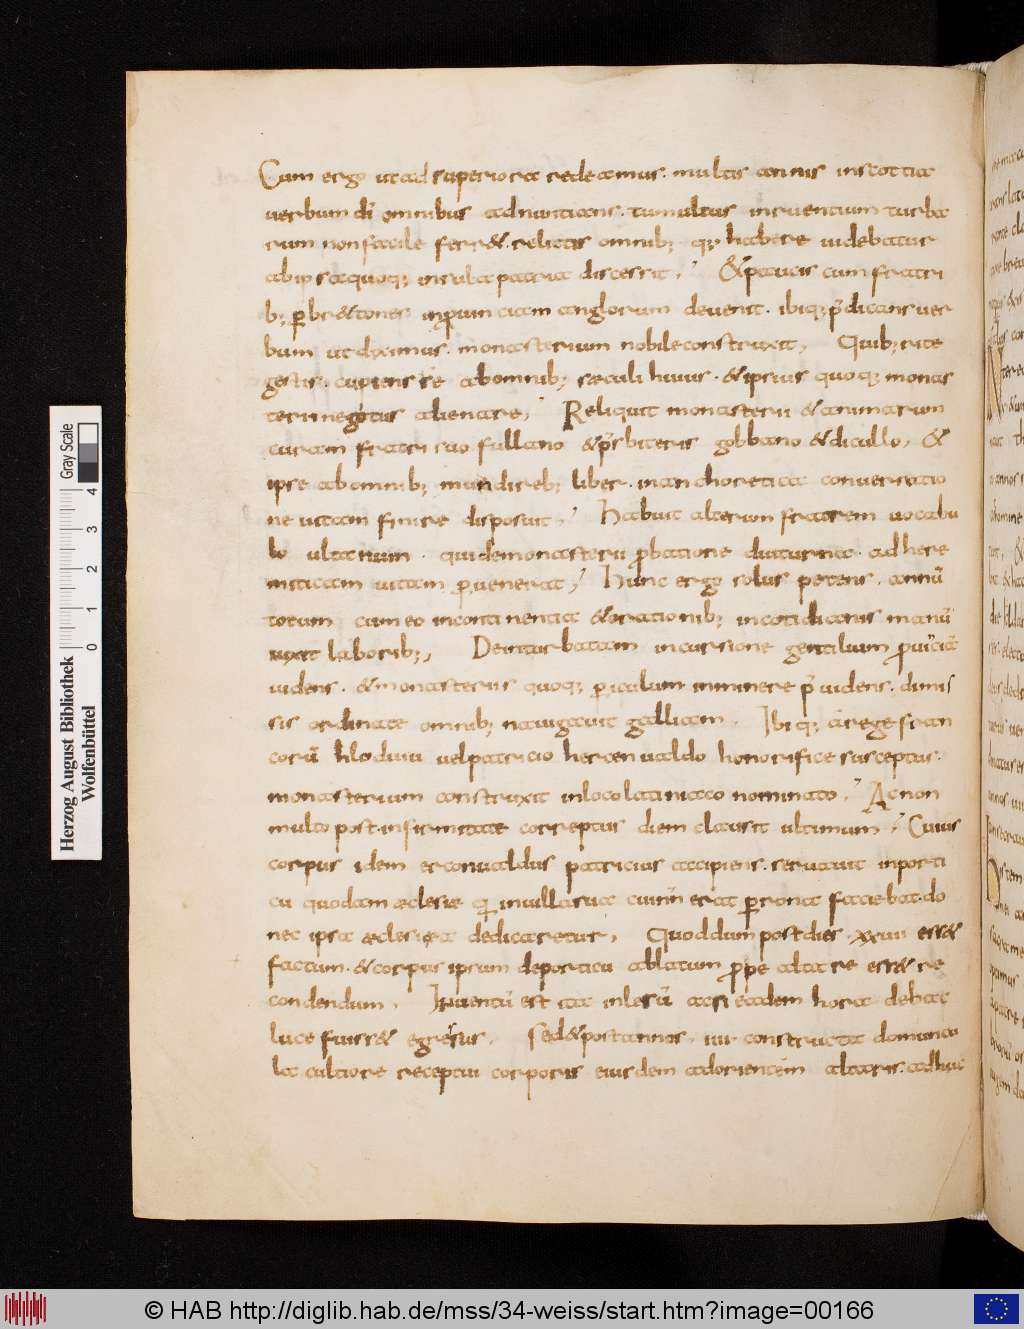 Cum ergo ut ad superiora redeamus. multis annis in scottia
verbum dī omnibus adnuntians. tumultus inruentium turba
rum non facile ferr&. relictis omnib; q; habere videbatur
ab ipsa quoq; insula patria discessit. &paucis cum fratri
b; p br&tones in provinciam anglorum devenit. ibiq; p̄dicans ver
bum ut diximus. monasterium nobile construxit, Quib; rite
gestis. cupiens se ab omnib; sæculi huius. &ipsius quoq; monas
terii negotiis alienare, Reliquit monasterii &animarum
curam fratri suo fullano &p̄sbiteris gobbano &dicullo, &
ipse ab omnib; mundi reb; liber. in anchoretica conversatio
ne vitam finire disposuit, Habuit alterum fratrem vocabu
lo ultanum. qui de monasterii pbatione diuturna. ad here
miticam vitam pvenerat, Hunc ergo solus petens. annū
totum cum eo in continentia &orationib; in cotidianis manuū
vixit laborib;, Dein turbatam incursione gentilium provinciā
videns. &monasteriis quoq; piculum inminere p̄videns. dimis
sis ordinate omnib; navigavit galliam. Ibiq; a rege fran
corū hlodviu vel patricio hercenvaldo honorifice susceptus.
monasterium construxit in loco latiniaco nominato, Ac non
multo post. infirmitate correptus diem clausit ultimum, Cuius
corpus idem erconvaldus patricius accipiens. servavit in porti
cu quodam æclesiæ q in villa sua cui nn̄ erat perrona faciebat. do
nec ipsa æclesia dedicaretur, Quod dum post dies xxvii ess&
factum. &corpus ipsum de porticu ablatum ppe altare ess& re
condendum. Inventū est ita inlesū acsi eadem hora de hac
luce fuiss& egressus. Sed &post annos. iiii constructa domuncu
la cultiore receptui corporis eiusdem ad orientem altaris. adhuc
Herzog August Bibliothek
Wolfenbüttel
0 1 2 3 4
Gray Scale
© HAB http://diglib.hab.de/mss/34-weiss/start.htm?image=00166